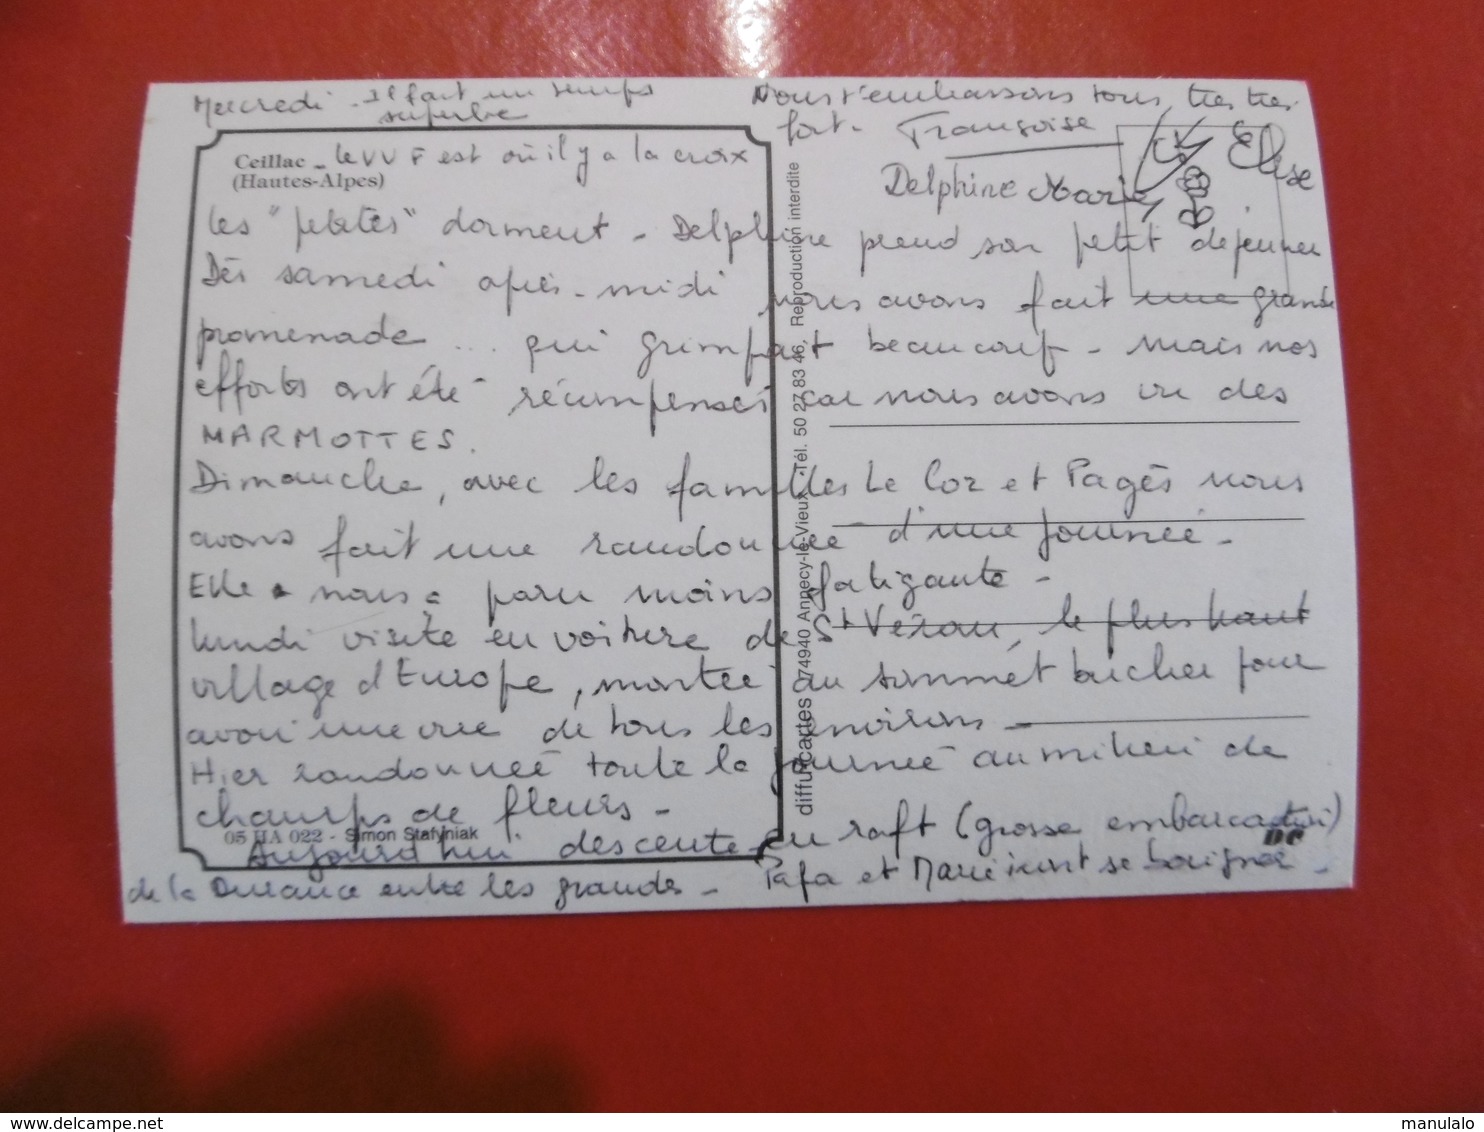 Mercredi - Il fait un temps
superbe
Ceillac - le VVF est où il y a la croix
(Hautes-Alpes)
les "petites" dorment - Delphine prend son petit déjeuner
Dès samedi après-midi nous avons fait une grande
promenade ... qui grimpait beaucoup - mais nos
efforts ont été récompensés car nous avons vu des
MARMOTTES.
Dimanche, avec les familles Le Coz et Pagès nous
avons fait une randonnée d'une journée -
Elle nous a paru moins fatigante -
lundi visite en voiture de St Véran, le plus haut
village d'Europe, montée au sommet bucher pour
avoir une vue de tous les environs -
Hier randonnée toute la journée au milieu de
champs de fleurs -
05 HA 022 - Simon Stafyniak
Aujourd'hui descente en raft (grosse embarcation)
de la Durance entre les grands - Papa et Marie iront se baigner -
Nous t'embrassons tous très très
fort - Françoise
Delphine Marie Elise
diffusicartes - 74940 Annecy-le-Vieux - Tél. 50 27 83 46, Reproduction interdite
DC
www.delcampe.net
manulalo